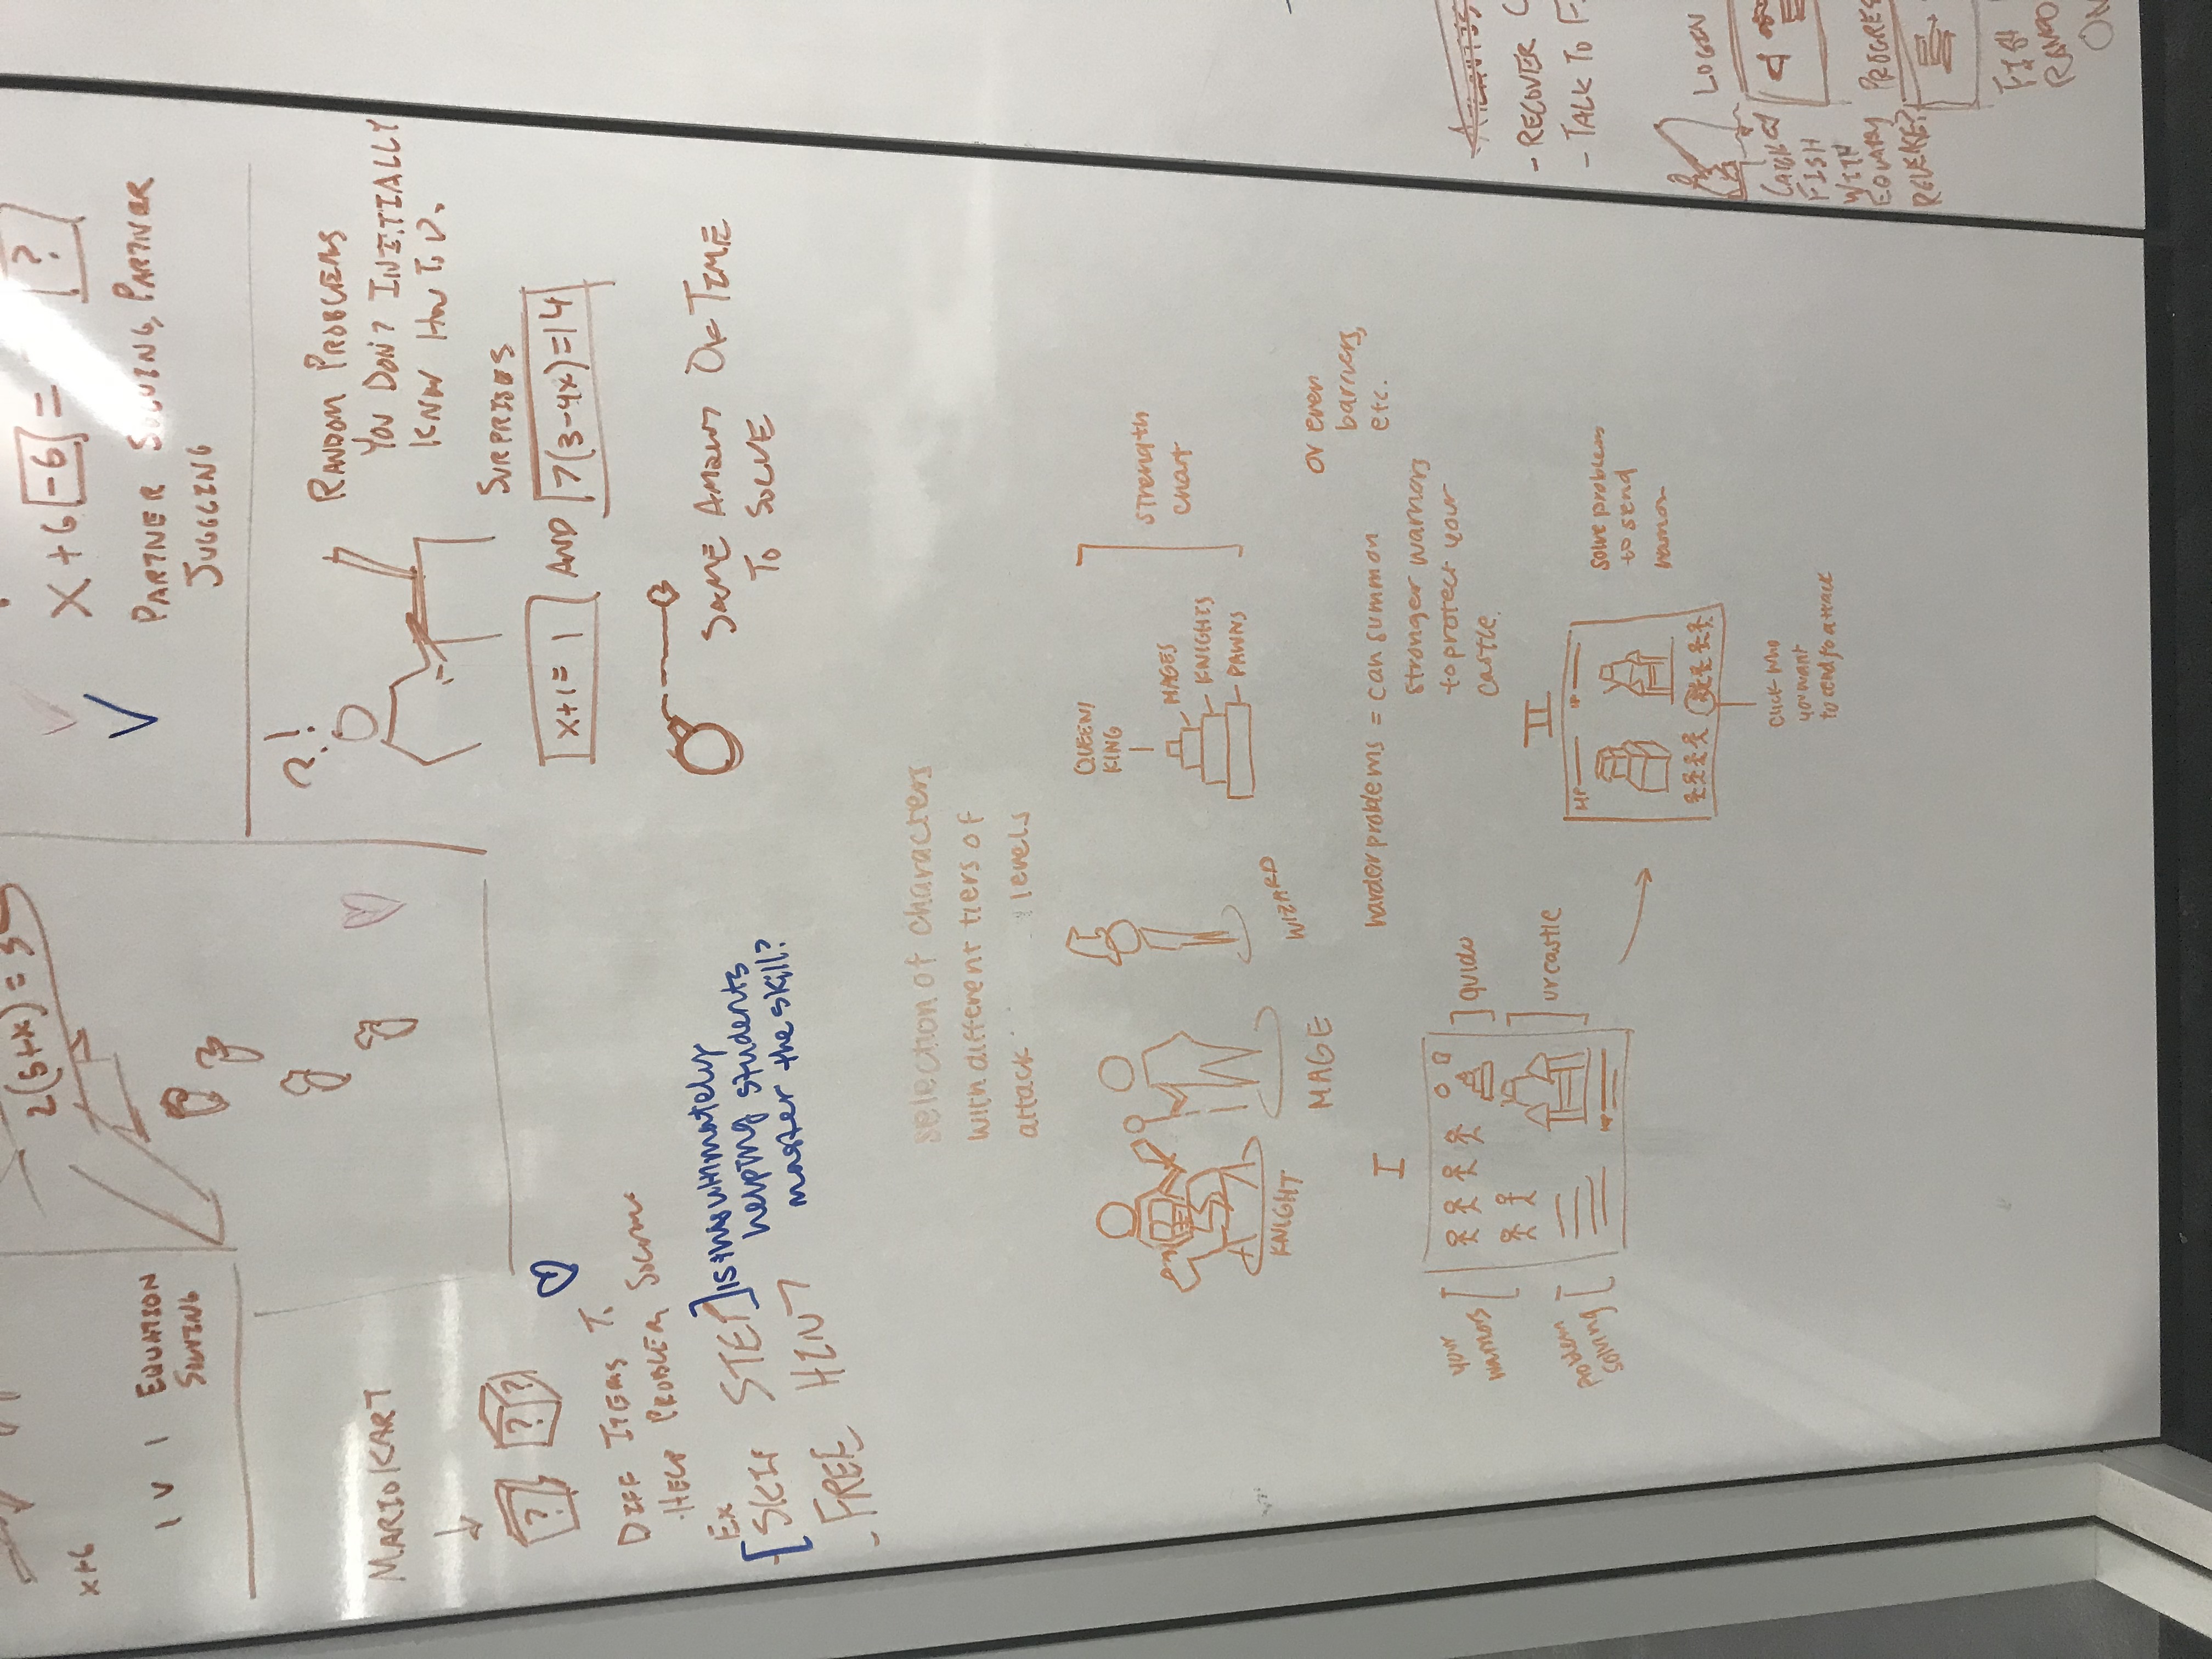 2(5+x)=3
x+6
1 V 1 EQUATION
SOLVING
x+6[-6]= [?]
PARTNER SOLVING, PARTNER
JUGGLING
MARIO KART
? ?
DIFF ITEMS TO
HELP PROBLEM SOLVING
EX
SKIP STEP
- FREE HINT
is this ultimately
helping students
master the skill?
?!
RANDOM PROBLEMS
YOU DON'T INITIALLY
KNOW HOW TO DO.
SURPRISES
x+1=1 AND 7(3-4x)=14
SAME AMOUNT OF TIME
TO SOLVE
selection of characters
with different tiers of
attack levels
KNIGHT
MAGE
WIZARD
QUEEN/
KING
MAGES
KNIGHTS
PAWNS
strength
chart
harder problems = can summon
stronger warriors
to protect your
castle.
or even
barriers,
etc.
I
your
warriors
problem
solving
guide
ur castle
II
HP
solve problems
to send
warrior
click who
you want
to send to attack
- RECOVER
- TALK TO
LOGIN
CAUGHT
FISH
WITH
EQUARY